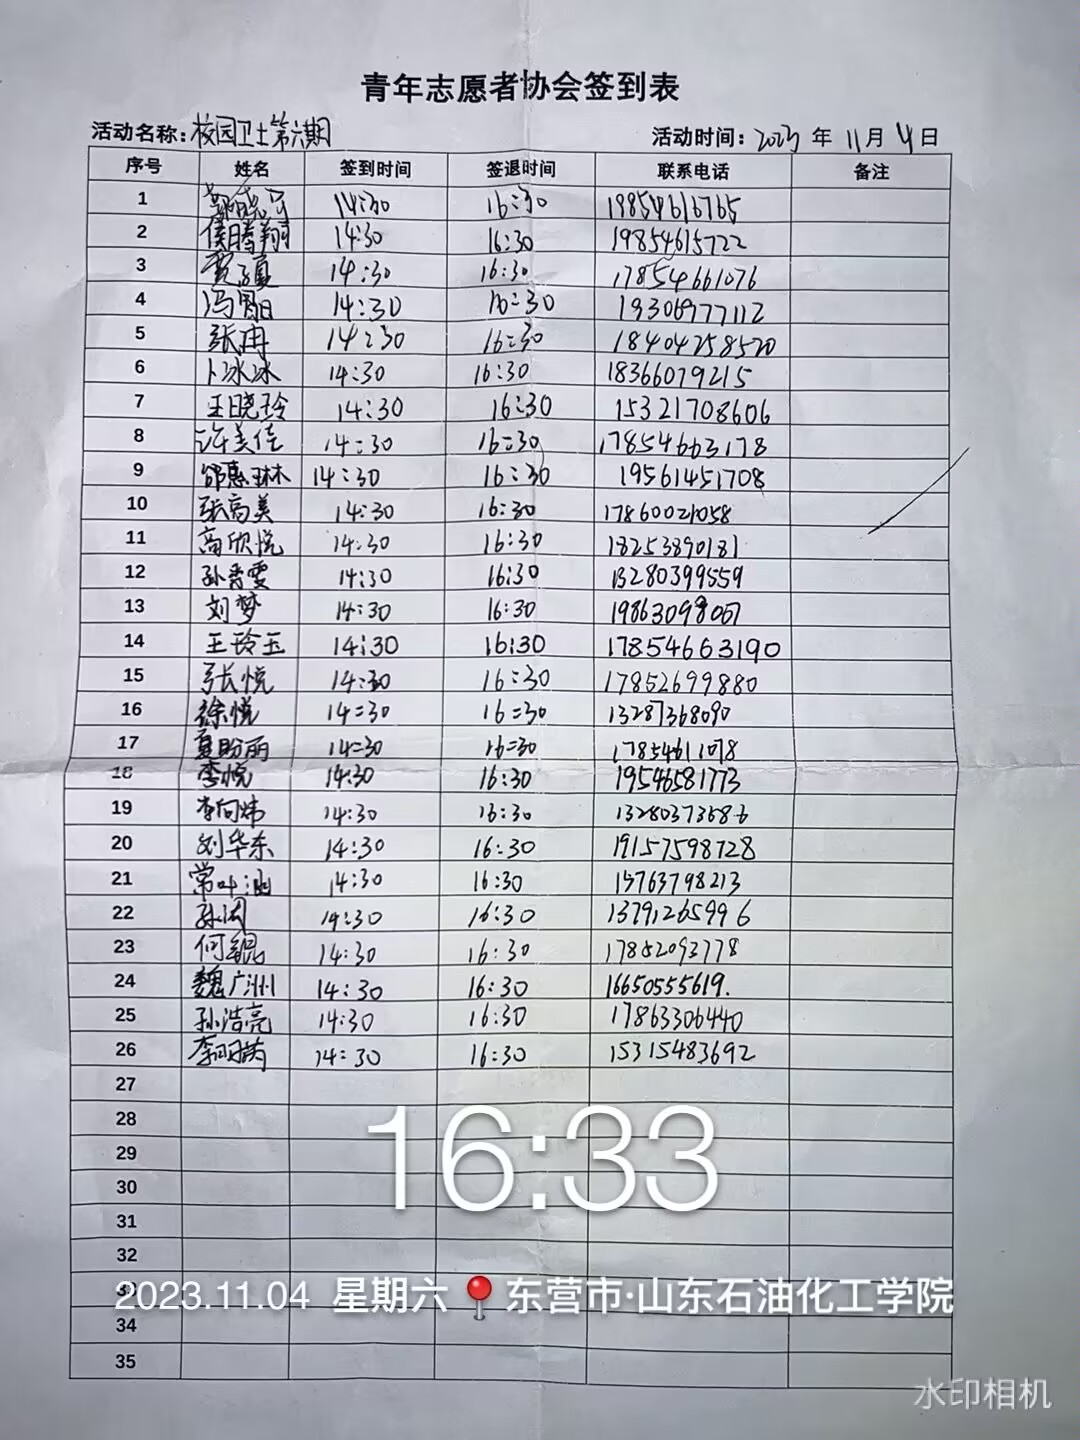 青年志愿者协会签到表
活动名称：校园卫士第六期 活动时间：2023年11月4日
序号 姓名 签到时间 签退时间 联系电话 备注
1 14:30 16:30 19854616765
2 侯腾翔 14:30 16:30 19854615722
3 14:30 16:30 17854661076
4 冯 14:30 16:30 19306977112
5 张冉 14:30 16:30 18404258520
6 卜冰冰 14:30 16:30 18366079215
7 王晓玲 14:30 16:30 15321708606
8 许美佳 14:30 16:30 17854663178
9 邰惠琳 14:30 16:30 19561451708
10 张高美 14:30 16:30 17860021058
11 高欣悦 14:30 16:30 18253890181
12 孙秀雯 14:30 16:30 13280399559
13 刘梦 14:30 16:30 19863098007
14 王玲玉 14:30 16:30 17854663190
15 张悦 14:30 16:30 17852699880
16 徐悦 14:30 16:30 13287368090
17 夏盼丽 14:30 16:30 17854611078
18 李悦 14:30 16:30 19546581773
19 李向炜 14:30 16:30 13280373686
20 刘华东 14:30 16:30 19157598728
21 常叶 14:30 16:30 15763798213
22 孙闯 14:30 16:30 13791265996
23 何锟 14:30 16:30 17852093778
24 魏广洲 14:30 16:30 16650555619.
25 孙浩亮 14:30 16:30 17863306440
26 李 14:30 16:30 15315483692
27
28
16:33
29
30
31
32
33
2023.11.04 星期六 东营市·山东石油化工学院
34
35
水印相机